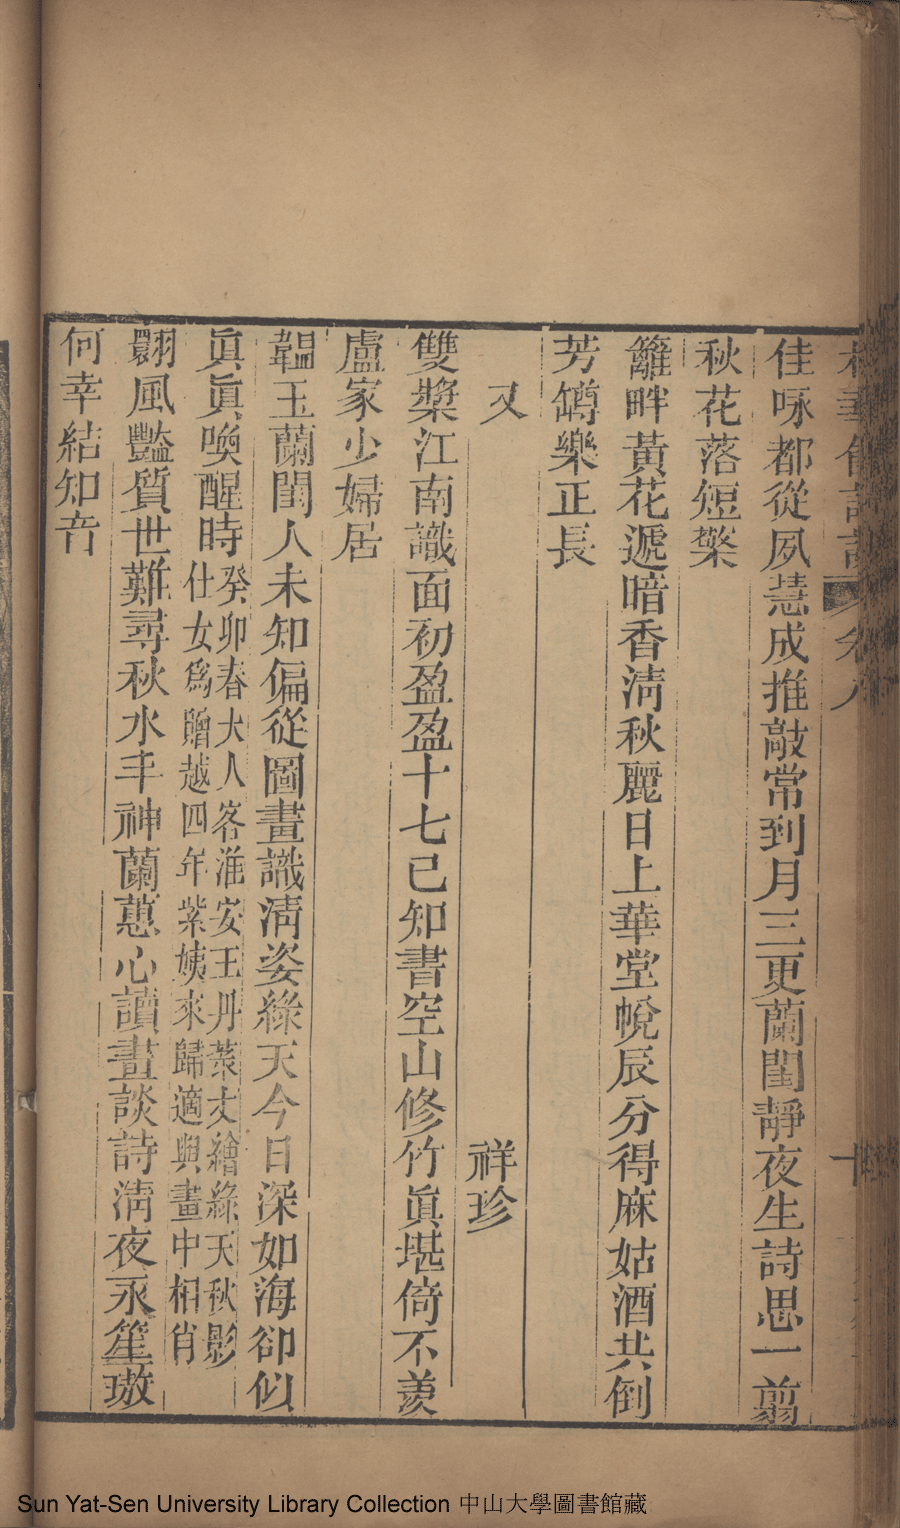 佳咏都從夙慧成推敲常到月三更蘭閨靜夜生詩思一翦
秋花落短檠
籬畔黃花遞暗香清秋麗日上華堂帨辰分得麻姑酒共倒
芳罇樂正長
又
祥珍
雙槳江南識面初盈盈十七已知書空山修竹眞堪倚不羨
盧家少婦居
韞玉蘭閨人未知偏從圖畫識清姿綠天今日深如海卻似
眞眞喚醒時
癸卯春大人客淮安王丹萊丈繪綠天秋影
仕女爲贈越四年紫姨來歸適與畫中相肖
翾風豔質世難尋秋水丰神蘭蕙心讀畫談詩淸夜永笙璈
何幸結知音
Sun Yat-Sen University Library Collection 中山大學圖書館藏